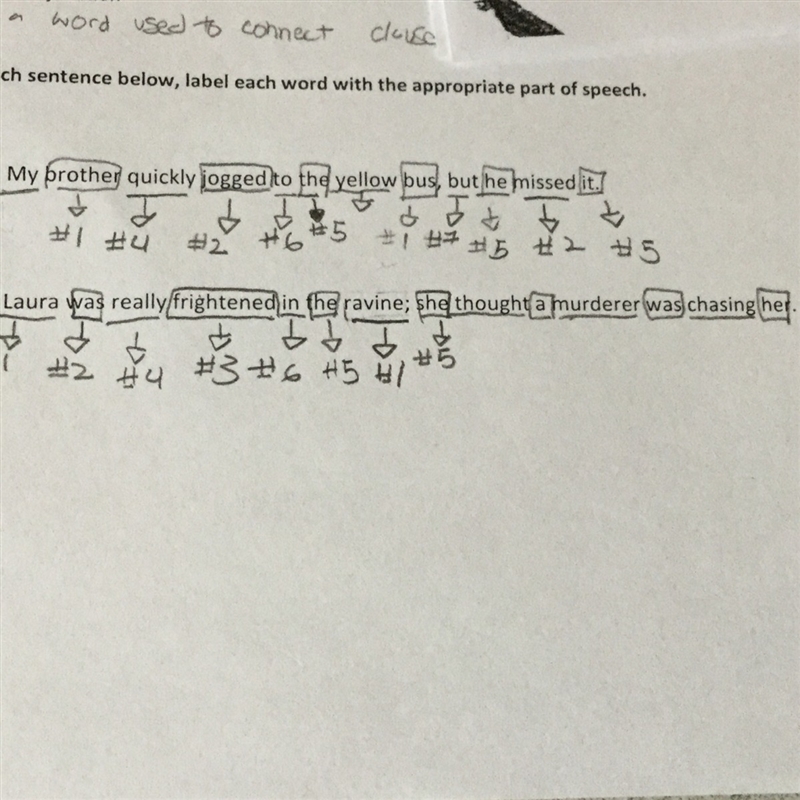 a word used to connect clause
ch sentence below, label each word with the appropriate part of speech.
My brother quickly jogged to the yellow bus, but he missed it.
#1 #4 #2 #6 #5 #1 #7 #5 #2 #5
Laura was really frightened in the ravine; she thought a murderer was chasing her.
1 #2 #4 #3 #6 #5 #1 #5